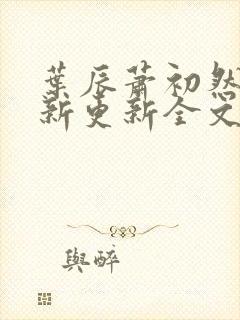 葉辰蕭初然
新更新全文
與醉